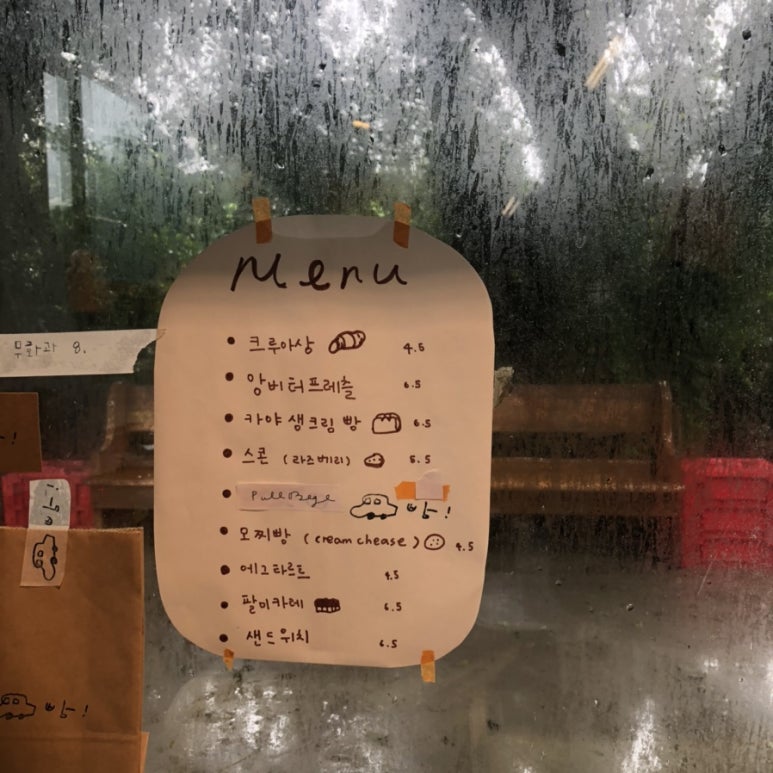 Menu
크루아상 4.5
앙버터프레츨 6.5
카야생크림빵 6.5
스콘 (라즈베리) 5.5
빵!
모찌빵 (cream chease) 4.5
에그타르트 4.5
팔미카레 6.5
샌드위치 6.5
무화과 8.
빵!
빵!